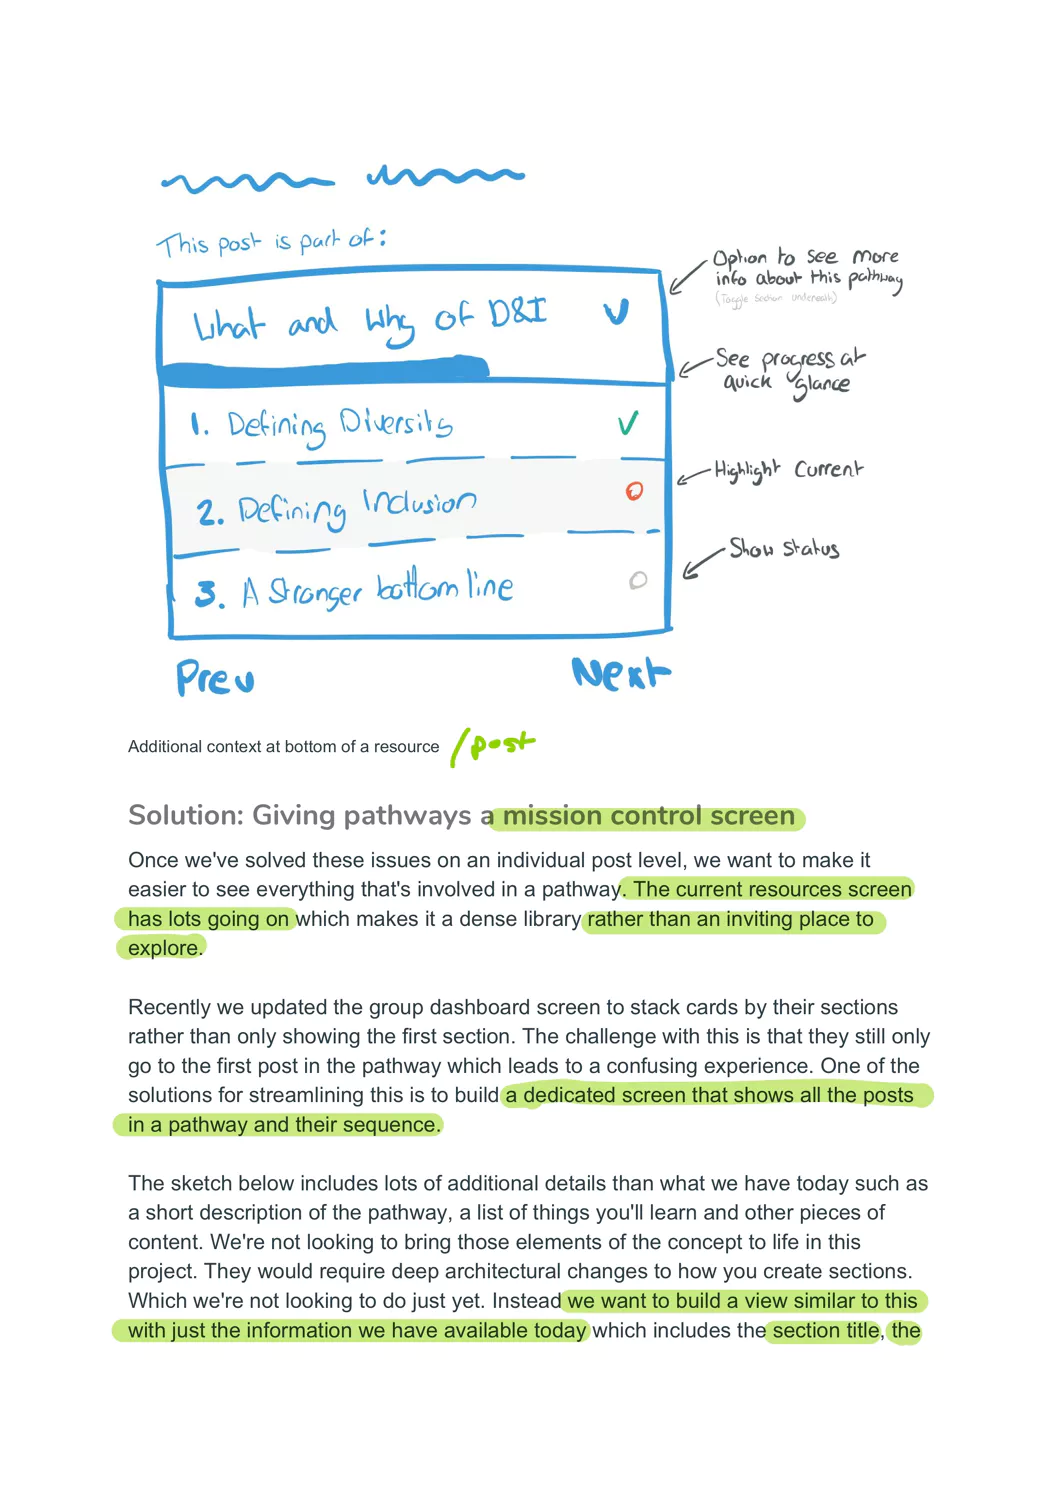 This post is part of:
What and Why of D&I
1. Defining Diversity
2. Defining Inclusion
3. A Stronger bottom line
Prev Next
Option to see more
info about this pathway
(Toggle Section Underneath)
See progress at
quick glance
Highlight Current
Show Status
Additional context at bottom of a resource /post
Solution: Giving pathways a mission control screen
Once we've solved these issues on an individual post level, we want to make it
easier to see everything that's involved in a pathway. The current resources screen
has lots going on which makes it a dense library rather than an inviting place to
explore.
Recently we updated the group dashboard screen to stack cards by their sections
rather than only showing the first section. The challenge with this is that they still only
go to the first post in the pathway which leads to a confusing experience. One of the
solutions for streamlining this is to build a dedicated screen that shows all the posts
in a pathway and their sequence.
The sketch below includes lots of additional details than what we have today such as
a short description of the pathway, a list of things you'll learn and other pieces of
content. We're not looking to bring those elements of the concept to life in this
project. They would require deep architectural changes to how you create sections.
Which we're not looking to do just yet. Instead we want to build a view similar to this
with just the information we have available today which includes the section title, the